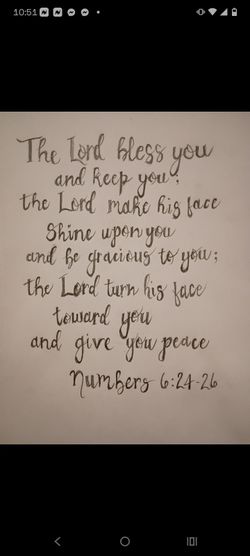 10:51
The Lord bless you
and keep you;
the Lord make his face
shine upon you
and be gracious to you;
the Lord turn his face
toward you
and give you peace
Numbers 6:24-26